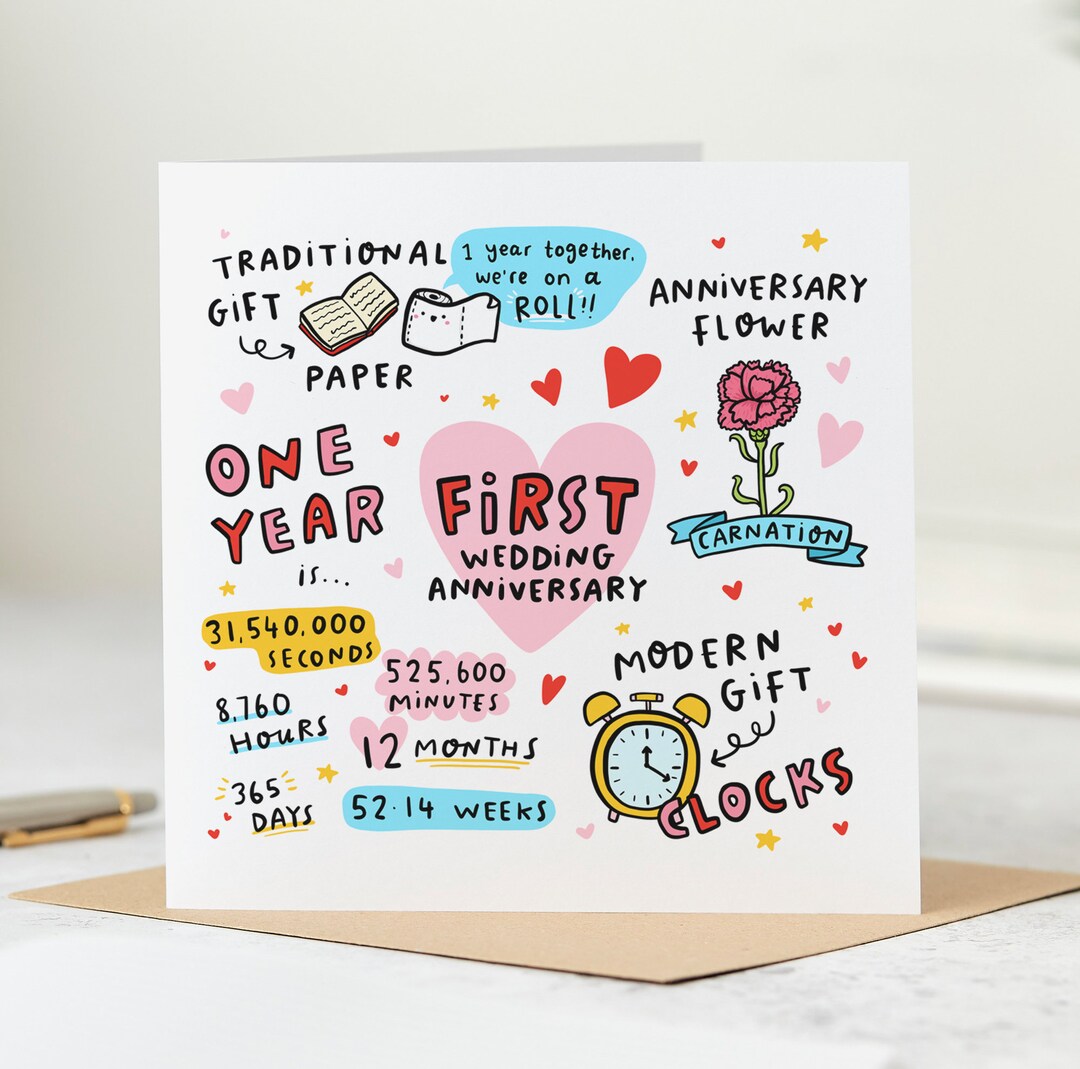 TRADiTiONAL
GiFT
PAPER
1 year together,
we're on a
ROLL!!
ANNiVERSARY
FLOWER
CARNATiON
ONE
YEAR
is...
FiRST
WEDDING
ANNiVERSARY
31,540,000
SECONDS
525,600
MiNUTES
8,760
HOURS
12 MONTHS
365
DAYS
52.14 WEEKS
MODERN
GiFT
CLOCKS